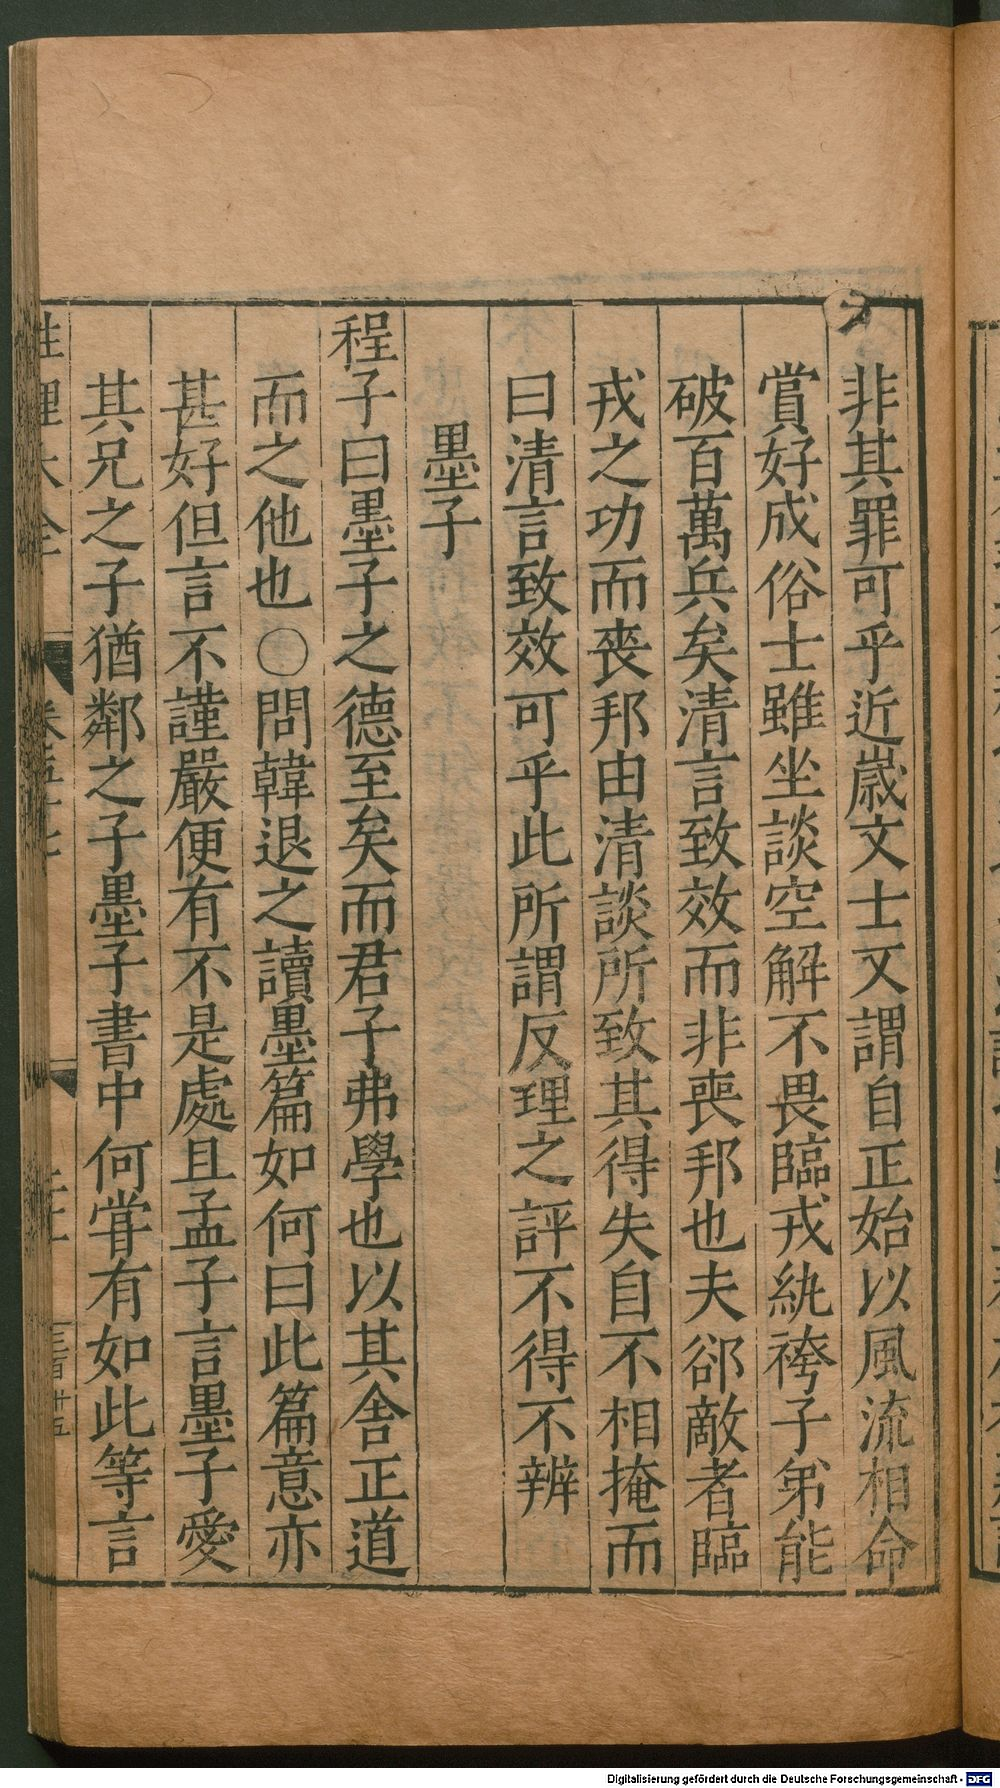 非其罪可乎近歲文士又謂自正始以風流相命
賞好成俗士雖坐談空解不畏臨戎紈袴子弟能
破百萬兵矣清言致效而非喪邦也夫郤敵者臨
戎之功而喪邦由清談所致其得失自不相掩而
曰清言致效可乎此所謂反理之評不得不辨
墨子
程子曰墨子之德至矣而君子弗學也以其舍正道
而之他也○問韓退之讀墨篇如何曰此篇意亦
甚好但言不謹嚴便有不是處且孟子言墨子愛
其兄之子猶鄰之子墨子書中何甞有如此等言
性理大全
三百廿五
Digitalisierung gefördert durch die Deutsche Forschungsgemeinschaft - DFG